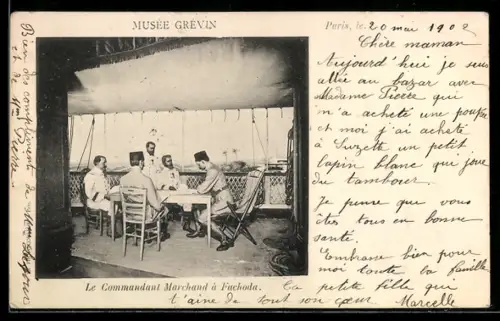 MUSÉE GRÉVIN
Paris, le 20 mai 1902
Chère maman
Aujourd'hui je suis
allée au bazar avec
Madame Pierre qui
m'a acheté une poupée
et moi j'ai acheté
à Suzette un petit
lapin blanc qui joue
du tambour.
Je pense que vous
êtes tous en bonne
santé.
Embrasse bien pour
moi toute la famille
Ta petite fille qui
t'aime de tout son cœur Marcelle
Le Commandant Marchand à Fachoda.
Bien des compliments de
et de Mme Pierre.